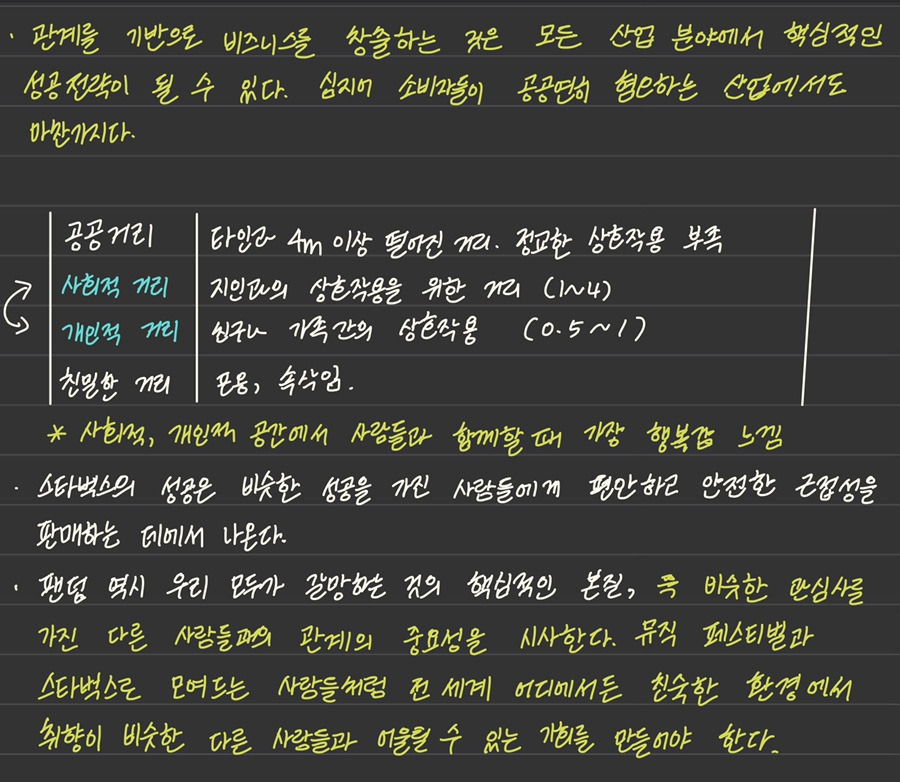 · 관계를 기반으로 비즈니스를 창출하는 것은 모든 산업 분야에서 핵심적인
성공전략이 될 수 있다. 심지어 소비자들이 공공연히 혐오하는 산업에서도
마찬가지다.
공공거리 타인과 4m 이상 떨어진 거리. 정교한 상호작용 부족
사회적 거리 지인과의 상호작용을 위한 거리 (1~4)
개인적 거리 친구나 가족간의 상호작용 (0.5~1)
친밀한 거리 포옹, 속삭임.
* 사회적, 개인적 공간에서 사람들과 함께할 때 가장 행복감 느낌
· 스타벅스의 성공은 비슷한 성공을 가진 사람들에게 편안하고 안전한 근접성을
판매하는 데에서 나온다.
· 팬덤 역시 우리 모두가 갈망하는 것의 핵심적인 본질, 즉 비슷한 관심사를
가진 다른 사람들과의 관계의 중요성을 시사한다. 뮤직 페스티벌과
스타벅스로 모여드는 사람들처럼 전 세계 어디에서든 친숙한 환경에서
취향이 비슷한 다른 사람들과 어울릴 수 있는 기회를 만들어야 한다.